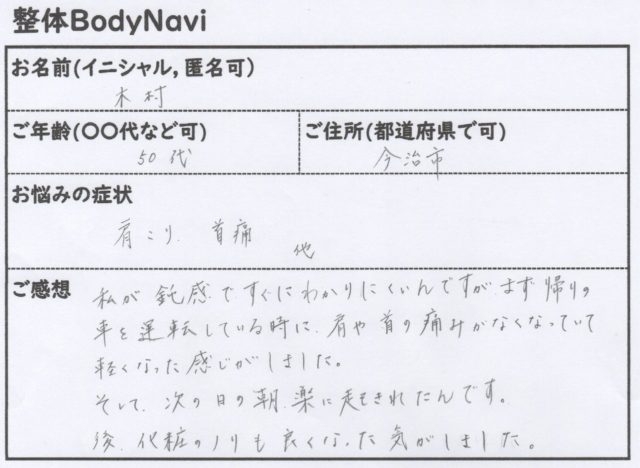 整体BodyNavi
お名前(イニシャル,匿名可)
木村
ご年齢(〇〇代など可)
50代
ご住所(都道府県で可)
今治市
お悩みの症状
肩こり、首痛
他
ご感想
私が鈍感ですぐにわかりにくいんですが、まず帰りの
車を運転している時に、肩や首の痛みがなくなっていて
軽くなった感じがしました。
そして、次の日の朝、楽に起きれたんです。
後、化粧のノリも良くなった気がしました。